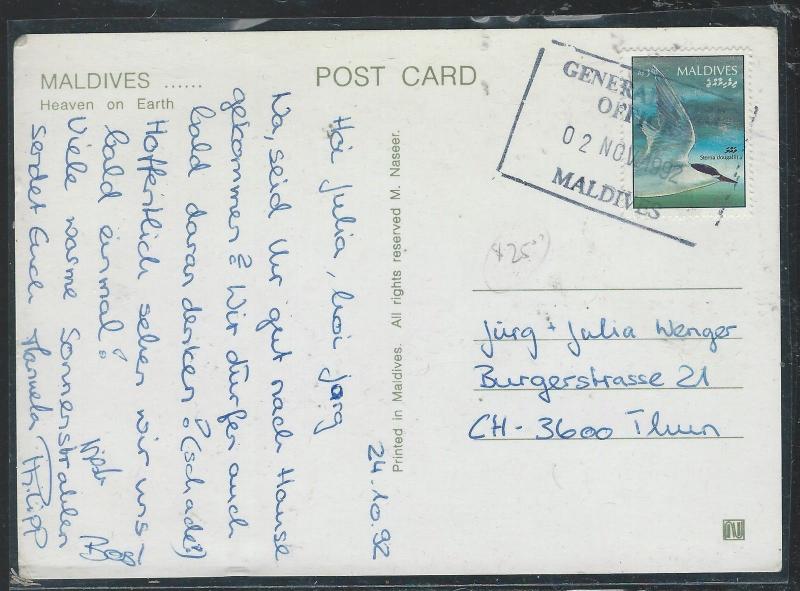 MALDIVES ......
Heaven on Earth
POST CARD
24.10.92
Hoi Julia, hoi Jürg
Na, seid Ihr gut nach Hause
gekommen? Wir dürfen auch
bald daran denken! (schade!)
Hoffentlich sehen wir uns
bald einmal!
Viele warme Sonnenstrahlen
sendet Euch Manuela Philipp
Printed in Maldives. All rights reserved M. Naseer.
GENERAL
OFFI
02 NOV 1992
MALDIVES
MALDIVES
ދިވެހިރާއްޖެ
Sterna dougallii
Jürg + Julia Wenger
Burgerstrasse 21
CH-3600 Thun